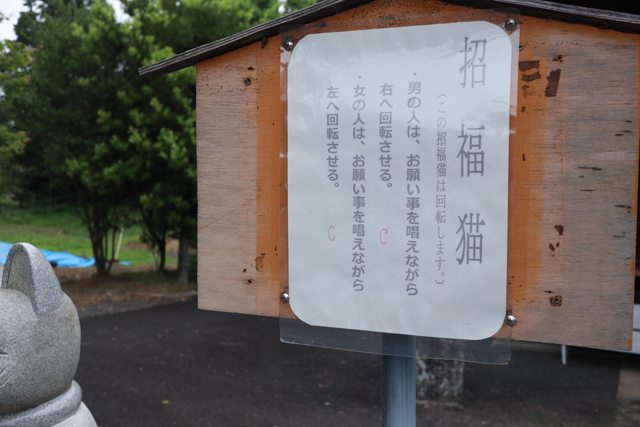 招福猫
（この招福猫は回転します。）
・男の人は、お願い事を唱えながら
右へ回転させる。
・女の人は、お願い事を唱えながら
左へ回転させる。